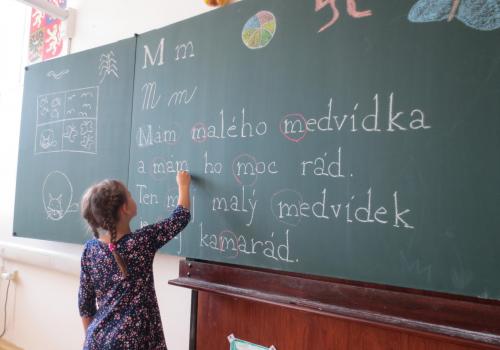 M m
M m
Mám malého medvídka
a mám ho moc rád.
Ten malý medvídek
kamarád.